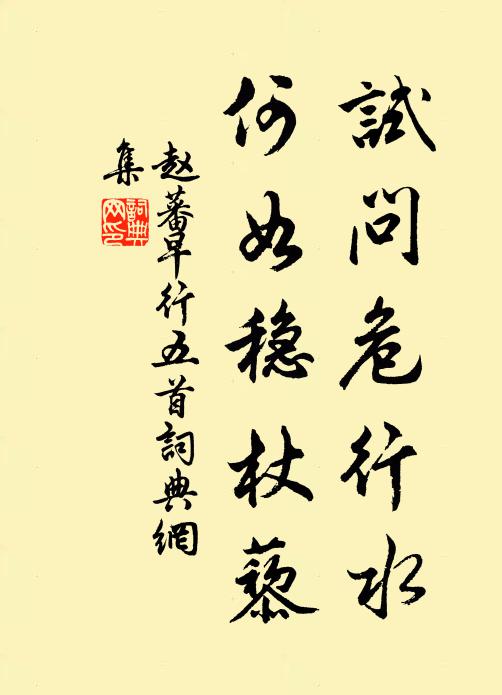 試問危行水
何如穩杖藜
赵蕃早行五首詞典網
集
詞典
网印